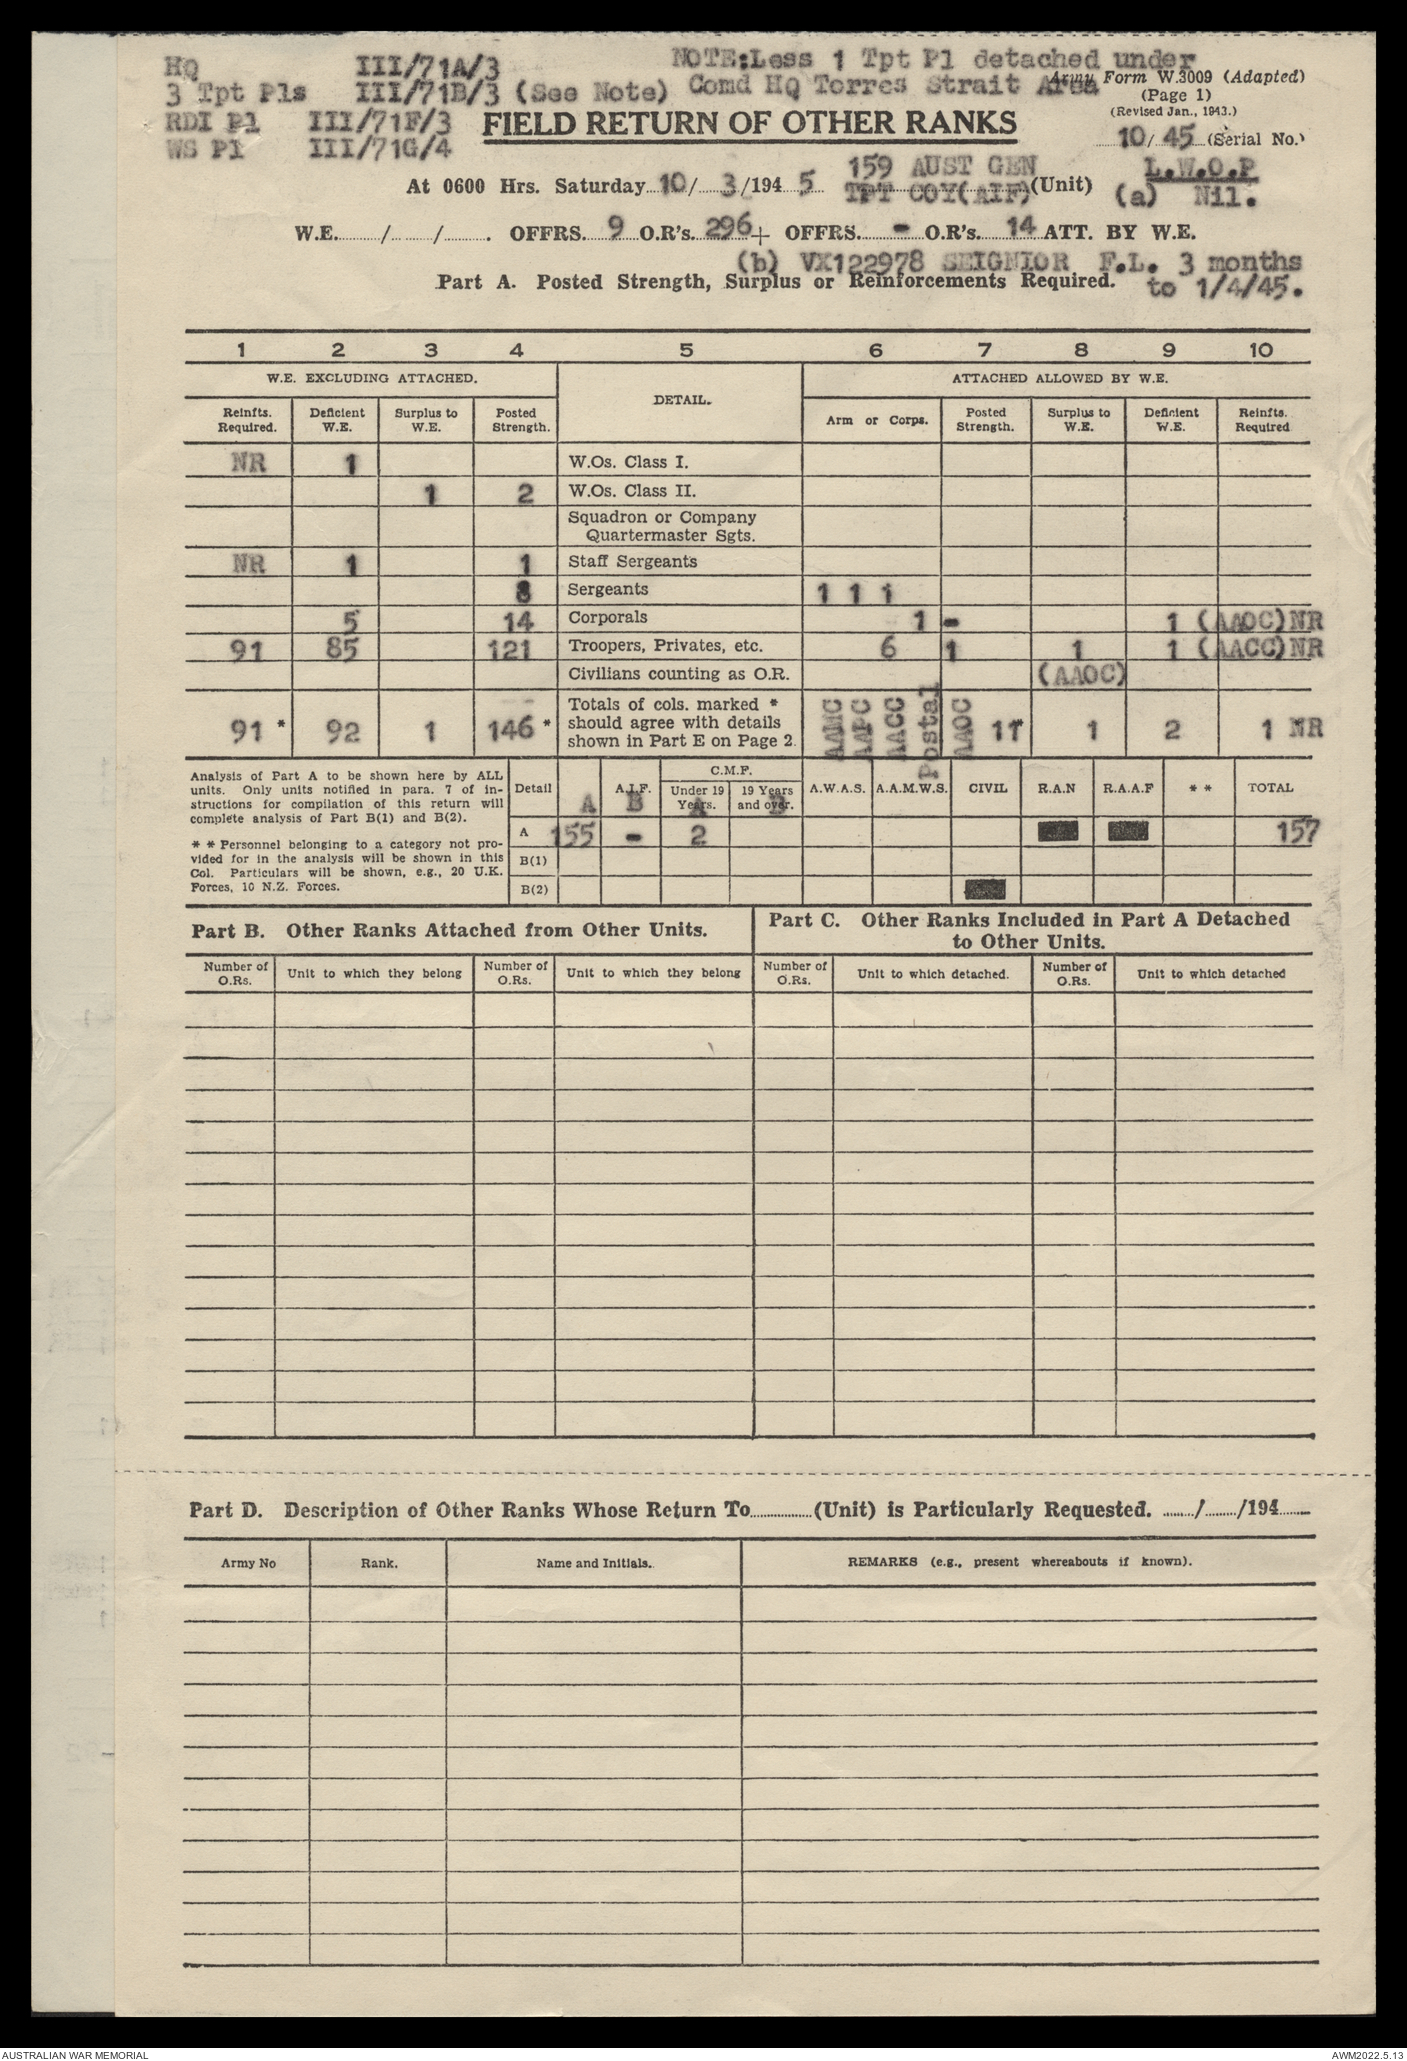 HQ III/71A/3 NOTE:Less 1 Tpt Pl detached under
3 Tpt Pls III/71B/3 (See Note) Comd HQ Torres Strait Area
Army Form W.3009 (Adapted)
(Page 1)
(Revised Jan., 1943.)
RDI Pl III/71F/3
WS Pl III/71G/4
FIELD RETURN OF OTHER RANKS
10/ 45 (Serial No.)
At 0600 Hrs. Saturday 10/ 3/194 5 159 AUST GEN
TPT COY(AIF) (Unit)
L.W.O.P
(a) Nil.
W.E. / / . OFFRS. 9 O.R's. 296+ OFFRS. - O.R's. 14 ATT. BY W.E.
(b) VX122978 SEIGNIOR F.L. 3 months
to 1/4/45.
Part A. Posted Strength, Surplus or Reinforcements Required.
1 2 3 4 5 6 7 8 9 10
W.E. EXCLUDING ATTACHED. DETAIL. ATTACHED ALLOWED BY W.E.
Reinfts. Required. Deficient W.E. Surplus to W.E. Posted Strength. Arm or Corps. Posted Strength. Surplus to W.E. Deficient W.E. Reinfts. Required
NR 1 W.Os. Class I.
1 2 W.Os. Class II.
Squadron or Company
Quartermaster Sgts.
NR 1 1 Staff Sergeants
8 Sergeants 1 1 1
5 14 Corporals 1 - 1 (AAOC)NR
91 85 121 Troopers, Privates, etc. 6 1 1 1 (AACC)NR
Civilians counting as O.R. (AAOC)
91 * 92 1 146 * Totals of cols. marked *
should agree with details
shown in Part E on Page 2.
AAMC AAPC AACC Postal AAOC 11* 1 2 1 NR
Analysis of Part A to be shown here by ALL
units. Only units notified in para. 7 of in-
structions for compilation of this return will
complete analysis of Part B(1) and B(2).
* * Personnel belonging to a category not pro-
vided for in the analysis will be shown in this
Col. Particulars will be shown, e.g., 20 U.K.
Forces, 10 N.Z. Forces.
Detail A.I.F. C.M.F. A.W.A.S. A.A.M.W.S. CIVIL R.A.N R.A.A.F * * TOTAL
Under 19 Years. 19 Years and over.
A B A B
A 155 - 2 157
B(1)
B(2)
Part B. Other Ranks Attached from Other Units.
Part C. Other Ranks Included in Part A Detached
to Other Units.
Number of O.Rs. Unit to which they belong Number of O.Rs. Unit to which they belong Number of O.Rs. Unit to which detached. Number of O.Rs. Unit to which detached
Part D. Description of Other Ranks Whose Return To (Unit) is Particularly Requested. / /194
Army No Rank. Name and Initials. REMARKS (e.g., present whereabouts if known).
AUSTRALIAN WAR MEMORIAL AWM2022.5.13